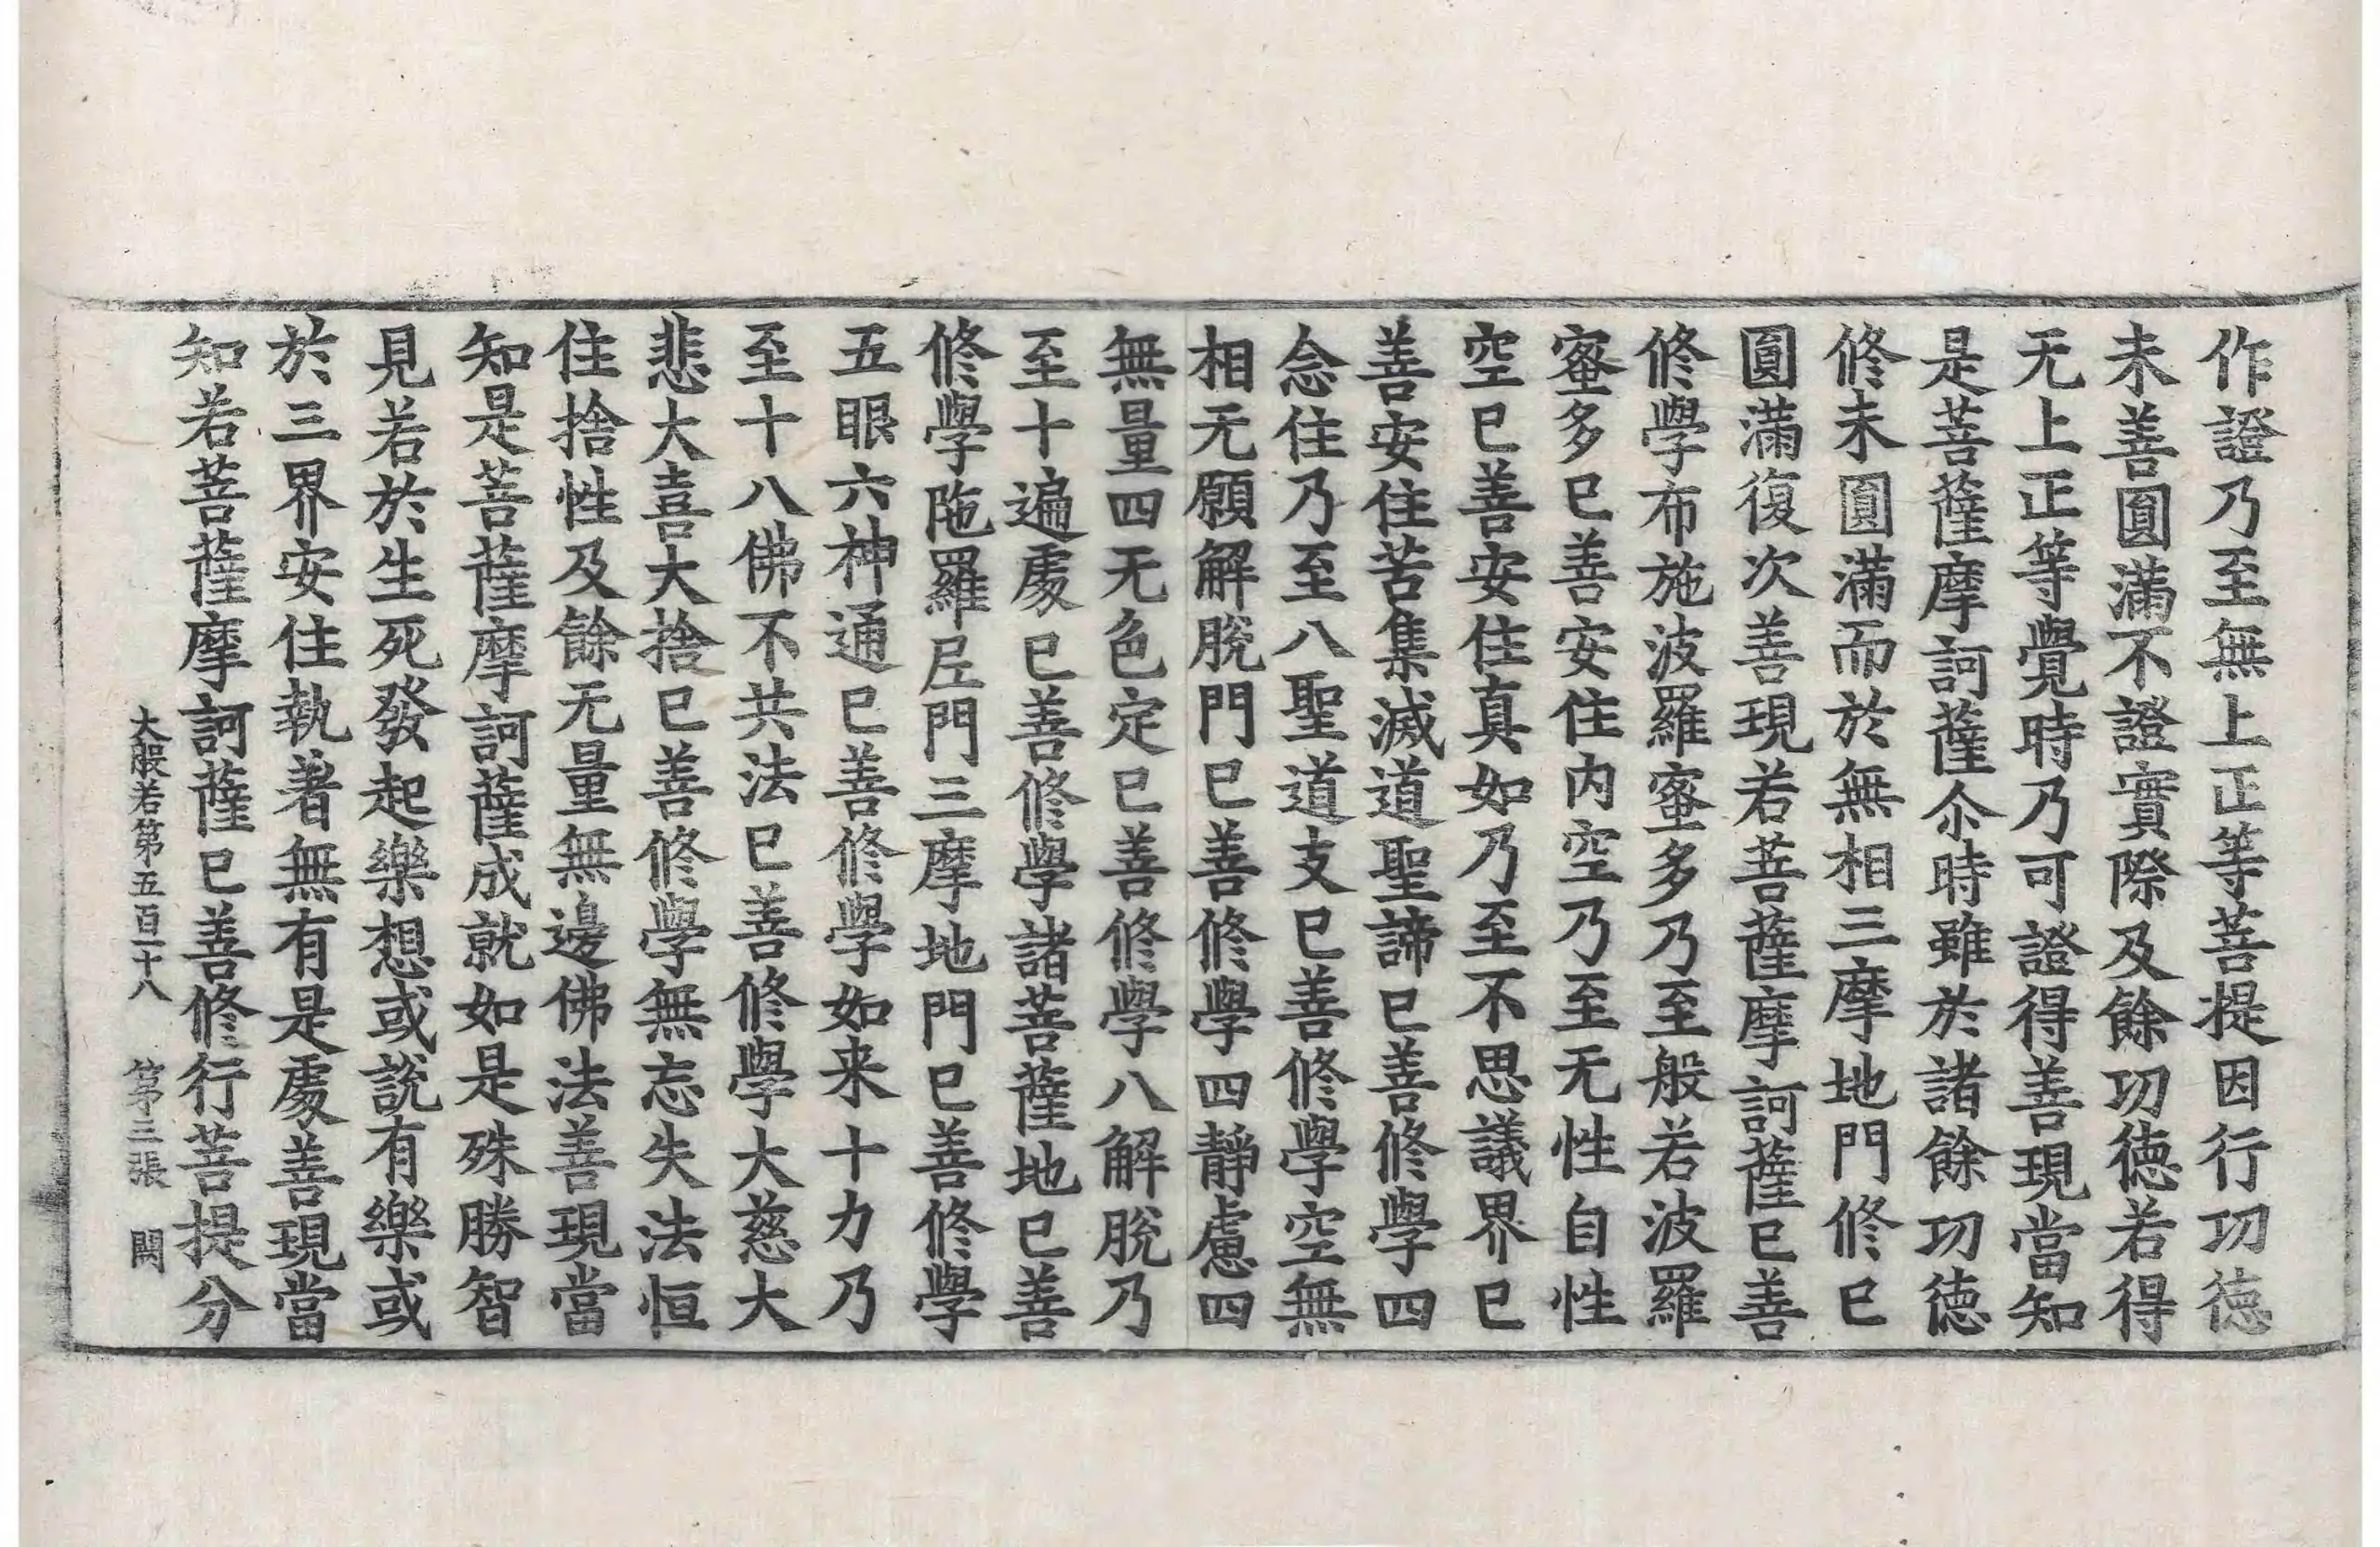 作證乃至無上正等菩提因行功德
未善圓滿不證實際及餘功德若得
无上正等覺時乃可證得善現當知
是菩薩摩訶薩尒時雖於諸餘功德
修未圓滿而於無相三摩地門修已
圓滿復次善現若菩薩摩訶薩已善
修學布施波羅蜜多乃至般若波羅
蜜多已善安住內空乃至无性自性
空已善安住真如乃至不思議界已
善安住苦集滅道聖諦已善修學四
念住乃至八聖道支已善修學空無
相无願解脫門已善修學四靜慮四
無量四无色定已善修學八解脫乃
至十遍處已善修學諸菩薩地已善
修學陁羅尼門三摩地門已善修學
五眼六神通已善修學如来十力乃
至十八佛不共法已善修學大慈大
悲大喜大捨已善修學無忘失法恒
住捨性及餘无量無邊佛法善現當
知是菩薩摩訶薩成就如是殊勝智
見若於生死發起樂想或說有樂或
於三界安住執著無有是處善現當
知若菩薩摩訶薩已善修行菩提分
大般若第五百二十八 第三張 闕